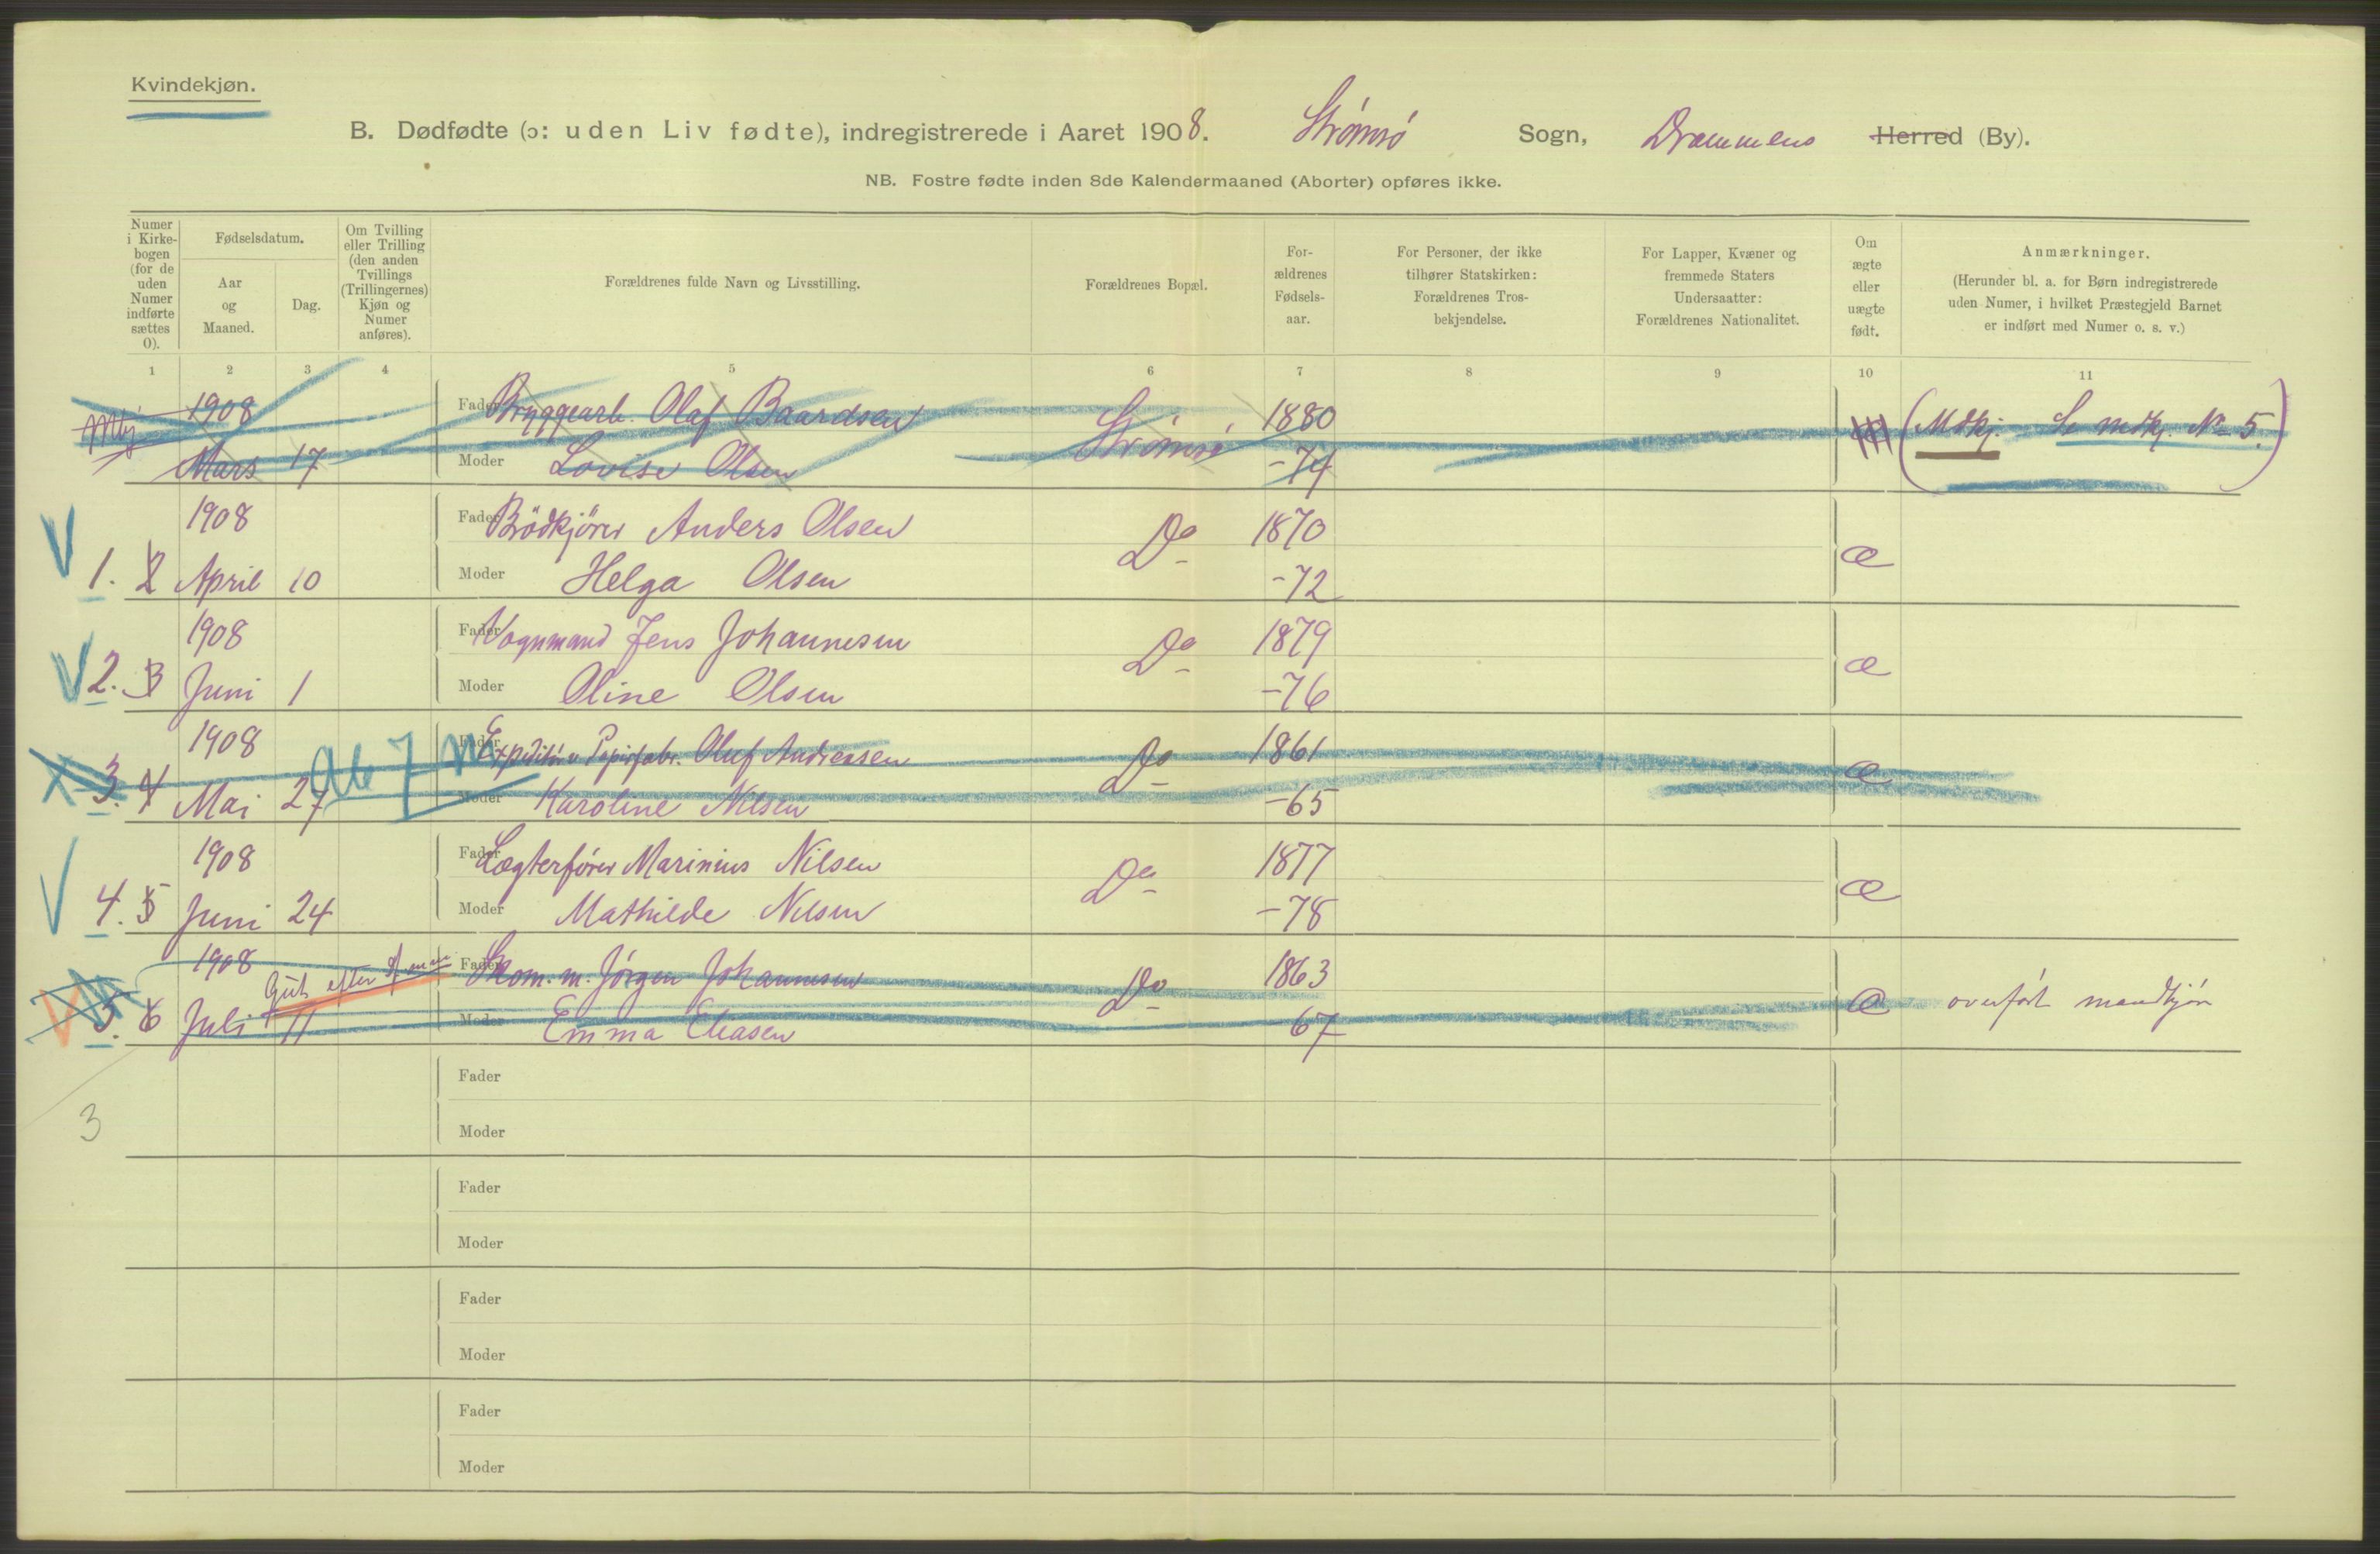 Kvindekjøn.
B. Dødfødte (ɔ: uden Liv fødte), indregistrerede i Aaret 1908. Strømsø Sogn, Drammens Herred (By).
NB. Fostre fødte inden 8de Kalendermaaned (Aborter) opføres ikke.
Numer i Kirkebogen (for de uden Numer indførte sættes 0).
Fødselsdatum.
Aar og Maaned.
Dag.
Om Tvilling eller Trilling (den anden Tvillings (Trillingernes) Kjøn og Numer anføres).
Forældrenes fulde Navn og Livsstilling.
Forældrenes Bopæl.
For-ældrenes Fødsels-aar.
For Personer, der ikke tilhører Statskirken: Forældrenes Tros-bekjendelse.
For Lapper, Kvæner og fremmede Staters Undersaatter: Forældrenes Nationalitet.
Om ægte eller uægte født.
Anmærkninger.
(Herunder bl. a. for Børn indregistrerede uden Numer, i hvilket Præstegjeld Barnet er indført med Numer o. s. v.)
1 2 3 4 5 6 7 8 9 10 11
1908 Fader Bryggearb. Olaf Baardsen Strømsø 1880 (Mdkj. Se mdkj. No 5.)
Mars 17 Moder Lovise Olsen -74
1908 Fader Bödkjører Anders Olsen Do 1870 æ
1. 2 April 10 Moder Helga Olsen -72
1908 Fader Vognmand Jens Johannesen Do 1879 æ
2. 3 Juni 1 Moder Oline Olsen -76
1908 Ab 7 m Fader Expeditör v. Papirfabr. Oluf Andreasen Do 1861 æ
3. 4 Mai 27 Moder Karoline Nilsen -65
1908 Fader Lægterfører Marinius Nilsen Do 1877 æ
4. 5 Juni 24 Moder Mathilde Nilsen -78
1908 Gut efter Fader Skom. m. Jørgen Johannesen Do 1863 æ overført mandkjøn
5. 6 Juli 11 Moder Emma Eliasen 67
Fader
3
Moder
Fader
Moder
Fader
Moder
Fader
Moder